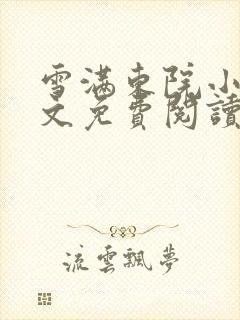 雪满东院小
文免費閱讀
流雲飄夢